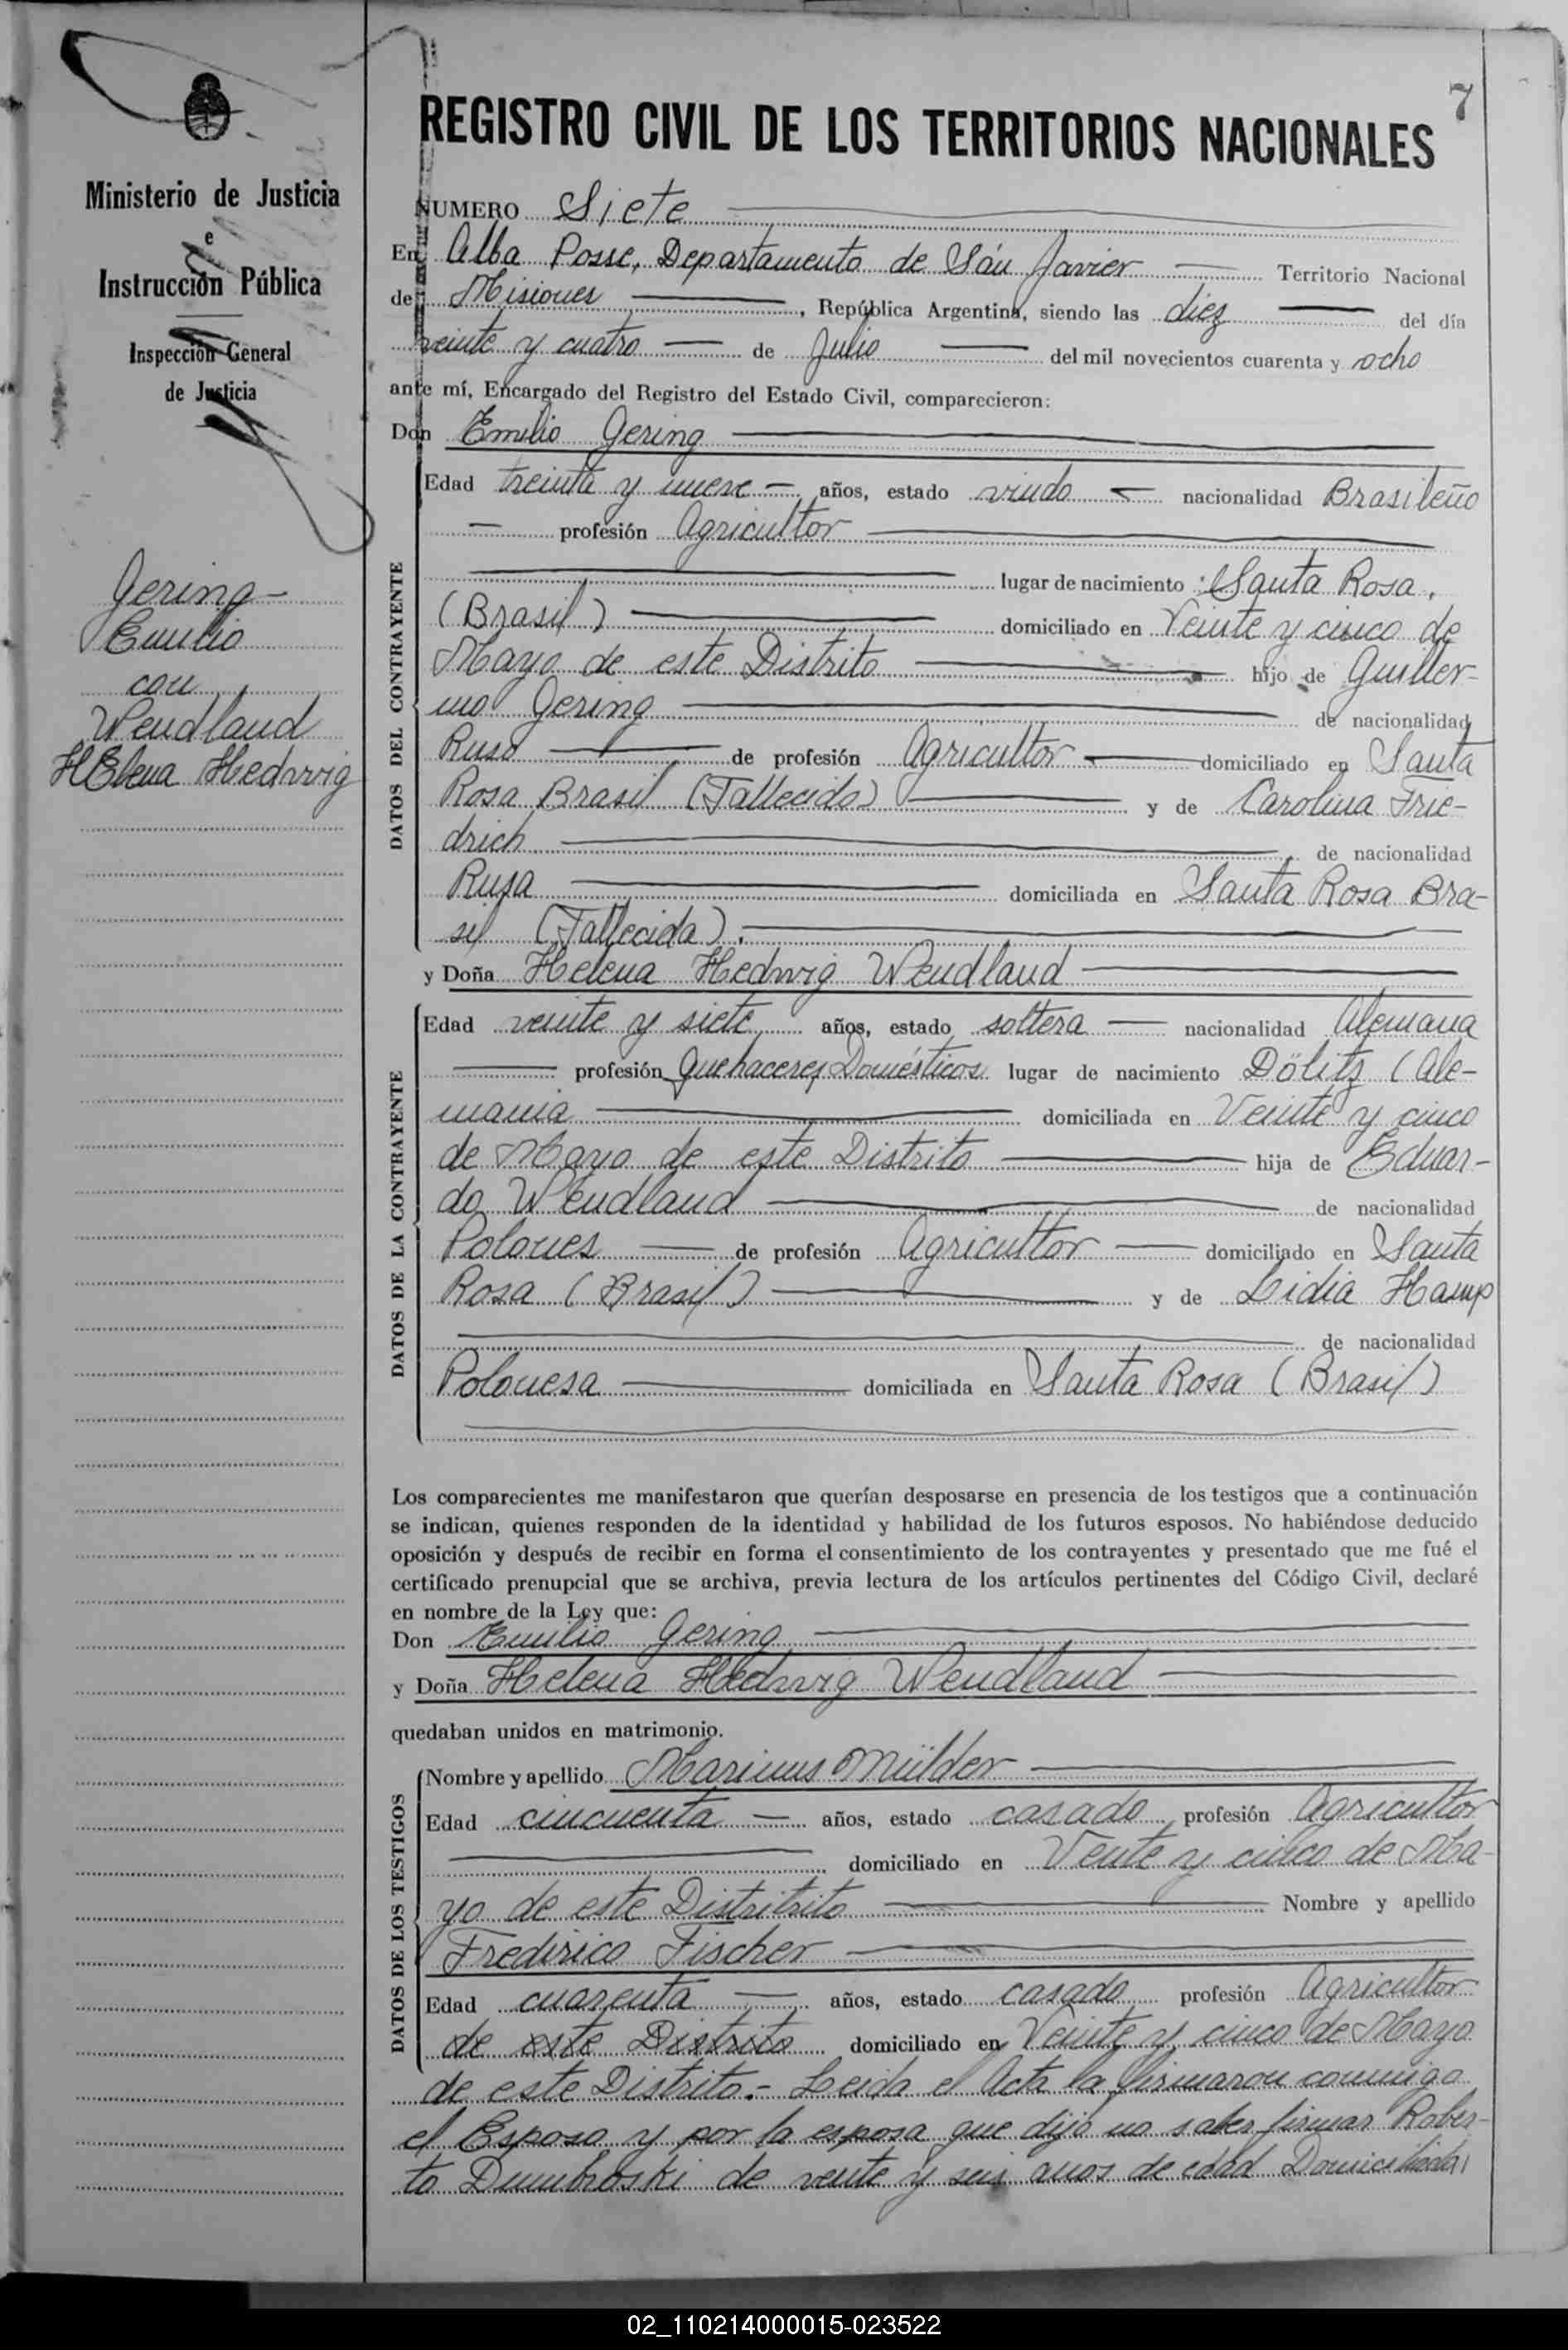 7
REGISTRO CIVIL DE LOS TERRITORIOS NACIONALES
Ministerio de Justicia
e
Instrucción Pública
Inspección General
de Justicia
Gering
Emilio
con
Wendland
HElena Hedwig
NUMERO Siete
En Alba Posse, Departamento de Sán Javier Territorio Nacional
de Misiones, República Argentina, siendo las diez del día
veinte y cuatro de Julio del mil novecientos cuarenta y ocho
ante mí, Encargado del Registro del Estado Civil, comparecieron:
Don Emilio Gering
DATOS DEL CONTRAYENTE
Edad treinta y nueve años, estado viudo nacionalidad Brasileño
profesión Agricultor
lugar de nacimiento Santa Rosa.
(Brasil) domiciliado en Veinte y cinco de
Mayo de este Distrito hijo de Guiller-
mo Gering de nacionalidad
Ruso de profesión Agricultor domiciliado en Santa
Rosa Brasil (Fallecido) y de Carolina Frie-
drich de nacionalidad
Rusa domiciliada en Santa Rosa Bra-
sil (Fallecida).
y Doña Helena Hedwig Wendland
DATOS DE LA CONTRAYENTE
Edad veinte y siete años, estado soltera nacionalidad Alemana
profesión Quehaceres Domésticos lugar de nacimiento Dölitz (Ale-
mania domiciliada en Veinte y cinco
de Mayo de este Distrito hija de Eduar-
do Wendland de nacionalidad
Polones de profesión Agricultor domiciliado en Santa
Rosa (Brasil) y de Lidia Hamp
de nacionalidad
Polonesa domiciliada en Santa Rosa (Brasil)
Los comparecientes me manifestaron que querían desposarse en presencia de los testigos que a continuación
se indican, quienes responden de la identidad y habilidad de los futuros esposos. No habiéndose deducido
oposición y después de recibir en forma el consentimiento de los contrayentes y presentado que me fué el
certificado prenupcial que se archiva, previa lectura de los artículos pertinentes del Código Civil, declaré
en nombre de la Ley que:
Don Emilio Gering
y Doña Helena Hedwig Wendland
quedaban unidos en matrimonio.
DATOS DE LOS TESTIGOS
Nombre y apellido Marinus Mülder
Edad cincuenta años, estado casado profesión Agricultor
domiciliado en Vente y cinco de Ma-
yo de este Distritrito Nombre y apellido
Fredirico Fischer
Edad cuarenta años, estado casado profesión Agricultor
de este Distrito domiciliado en Veinte y cinco de Mayo
de este Distrito.- Leida el Acta la firmaron conmigo
el Esposo y por la esposa que dijó no saber firmar Rober-
to Dumbroski de vente y seis anos de edad Domiciliado
02_110214000015-023522